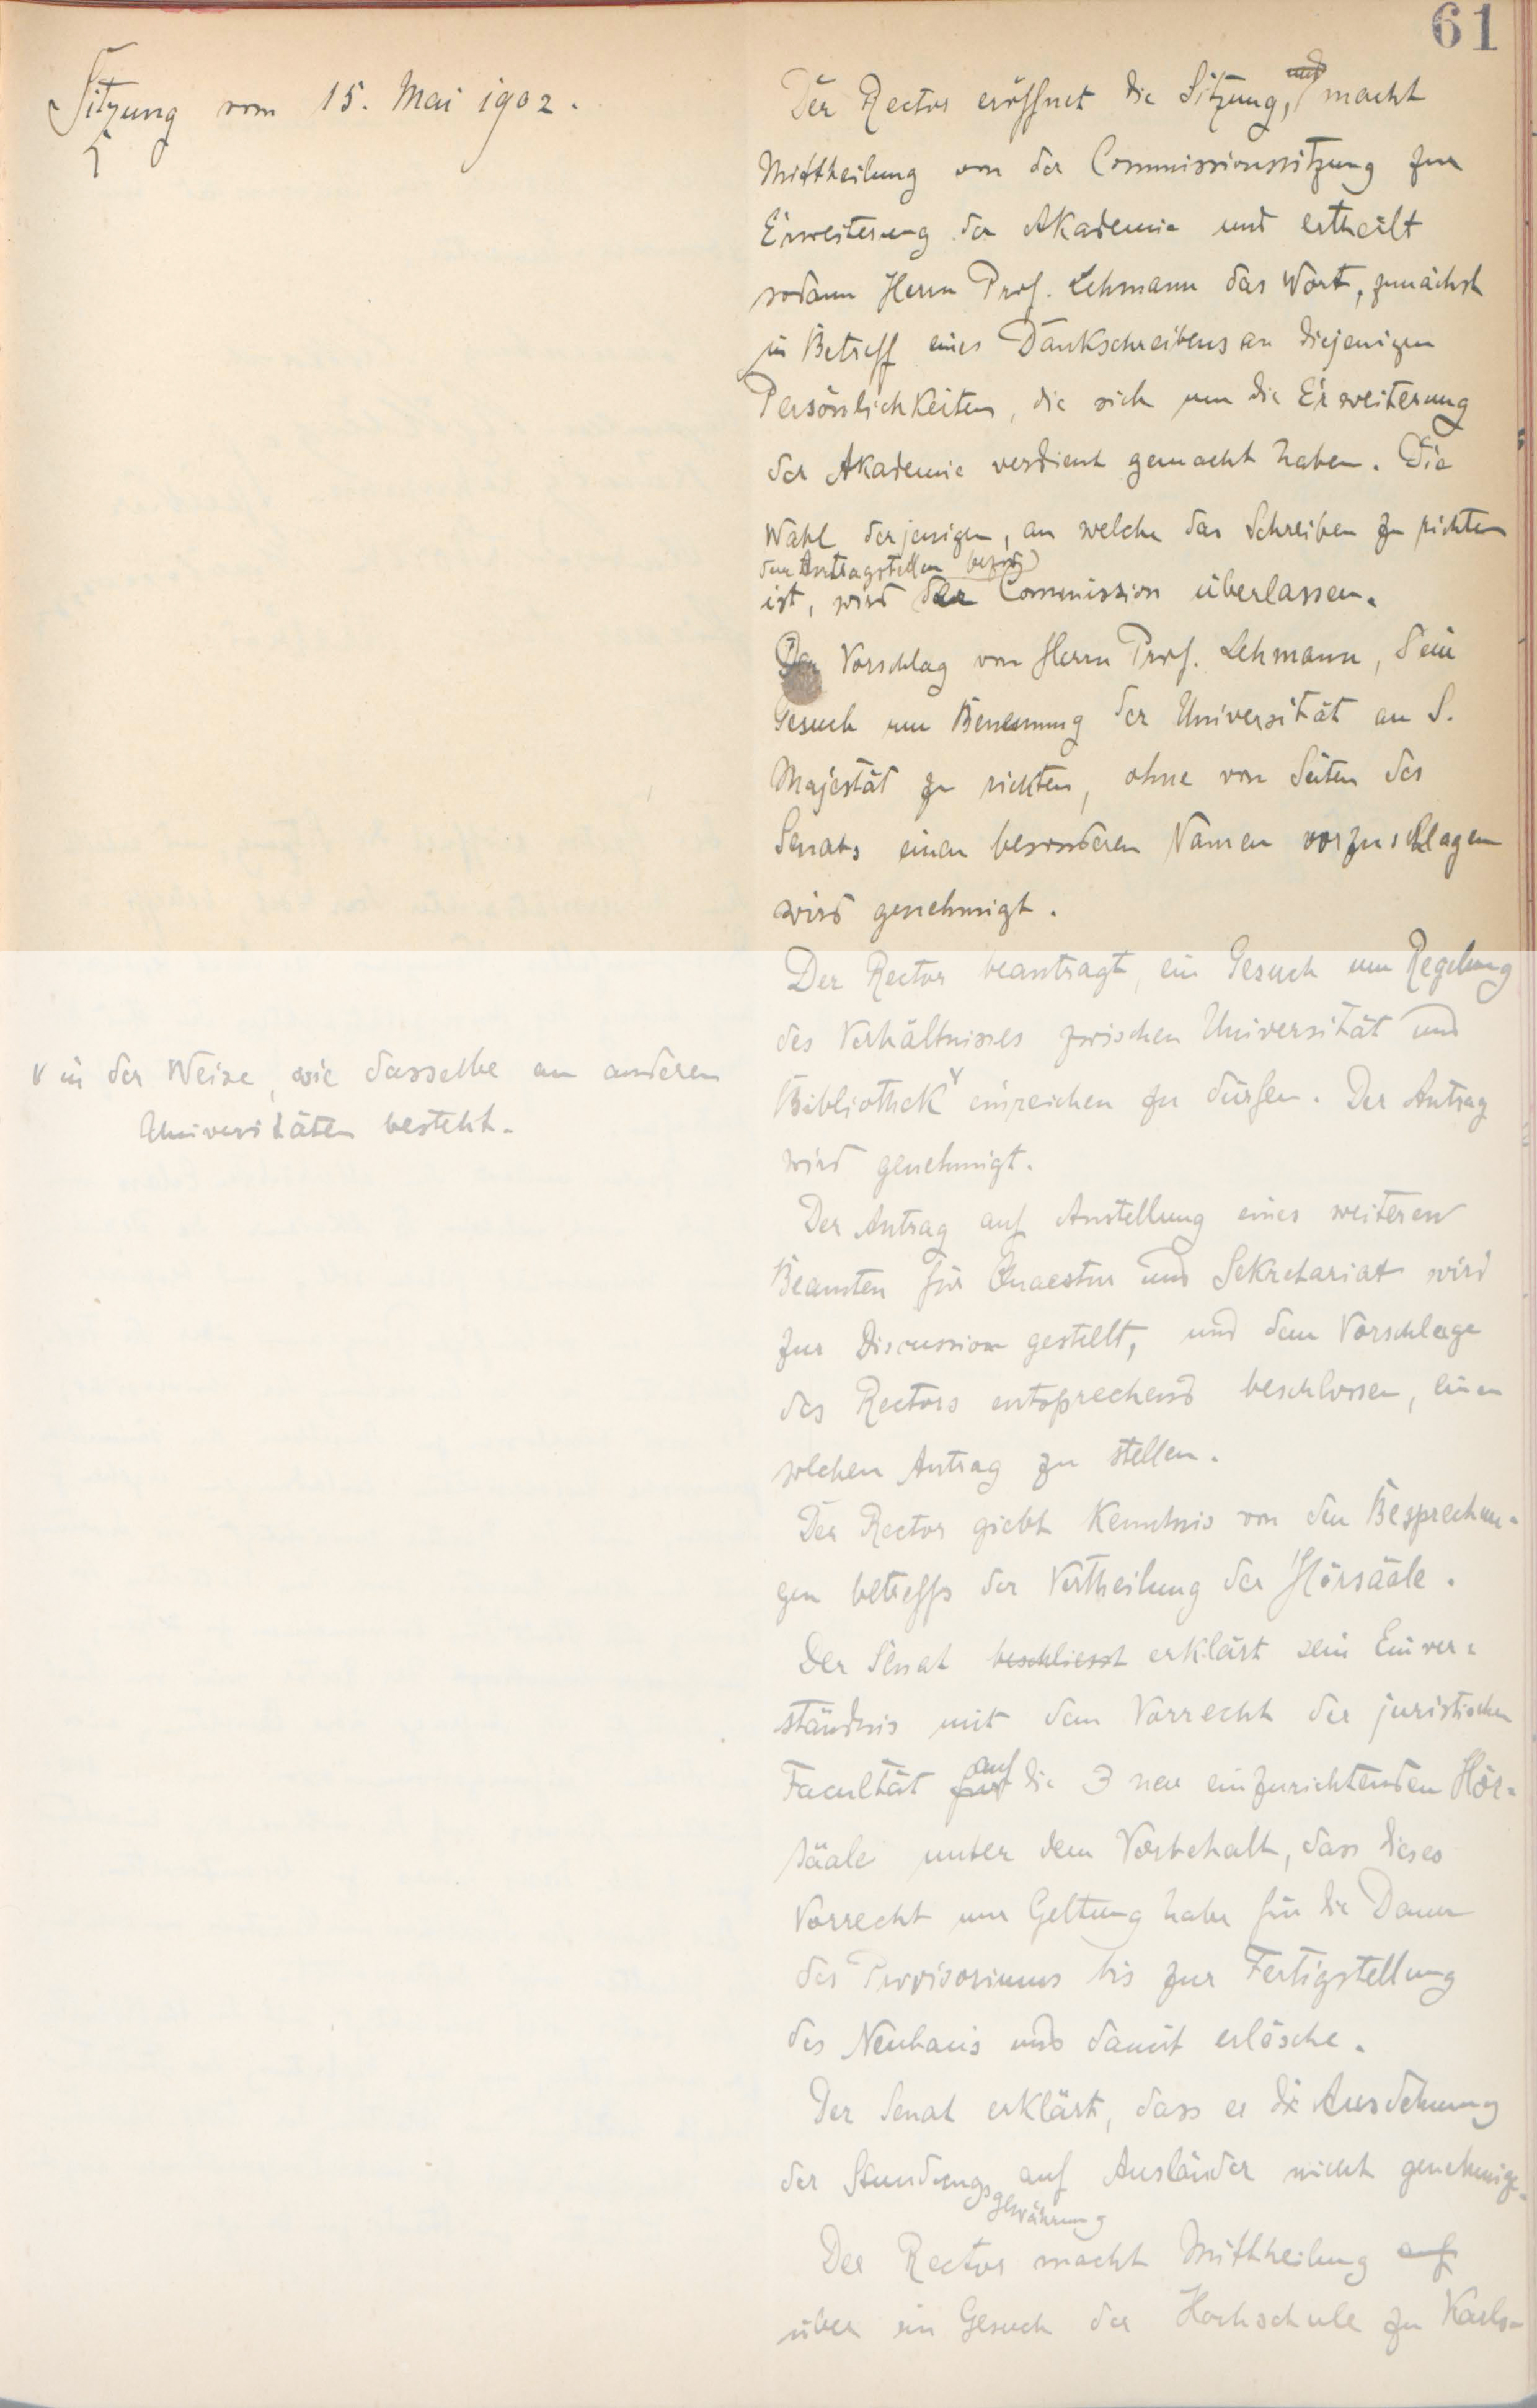 61
Sitzung vom 15. Mai 1902.
Der Rector eröffnet die Sitzung, und macht
Mittheilung von der Commissionssitzung zur
Erweiterung der Akademie und ertheilt
sodann Herrn Prof. Lehmann das Wort, zunächst
in Betreff eines Dankschreibens an diejenigen
Persönlichkeiten, die sich um die Erweiterung
der Akademie verdient gemacht haben. Die
Wahl derjenigen, an welche das Schreiben zu richten
den Antragstellern
ist, wird der Commission überlassen.
Der Vorschlag von Herrn Prof. Lehmann, ein
Gesuch um Benennung der Universität an S.
Majestät zu richten, ohne von Seiten des
Senats einen besonderen Namen vorzuschlagen
wird genehmigt.
Der Rector beantragt, ein Gesuch um Regelung
des Verhältnisses zwischen Universität und
Bibliothek v einreichen zu dürfen. Der Antrag
v in der Weise, wie dasselbe an anderen
Universitäten besteht.
wird genehmigt.
Der Antrag auf Anstellung eines weiteren
Beamten für Quaestur und Sekretariat wird
zur Discussion gestellt, und dem Vorschlage
des Rectors entsprechend beschlossen, einen
solchen Antrag zu stellen.
Der Rector giebt Kenntnis von den Besprechun-
gen betreffs der Vertheilung der Hörsääle.
Der Senat beschliesst erklärt sein Einver-
ständnis mit dem Vorrecht der juristischen
Facultät für auf die 3 neu einzurichtenden Hör-
sääle unter dem Vorbehalt, dass dieses
Vorrecht nur Geltung habe für die Dauer
des Provisoriums bis zur Fertigstellung
des Neubaus und damit erlösche.
Der Senat erklärt, dass er die Ausdehnung
der Stundungsgewährung auf Ausländer nicht genehmige.
Der Rector macht Mittheilung auf
über ein Gesuch der Hochschule zu Karls-